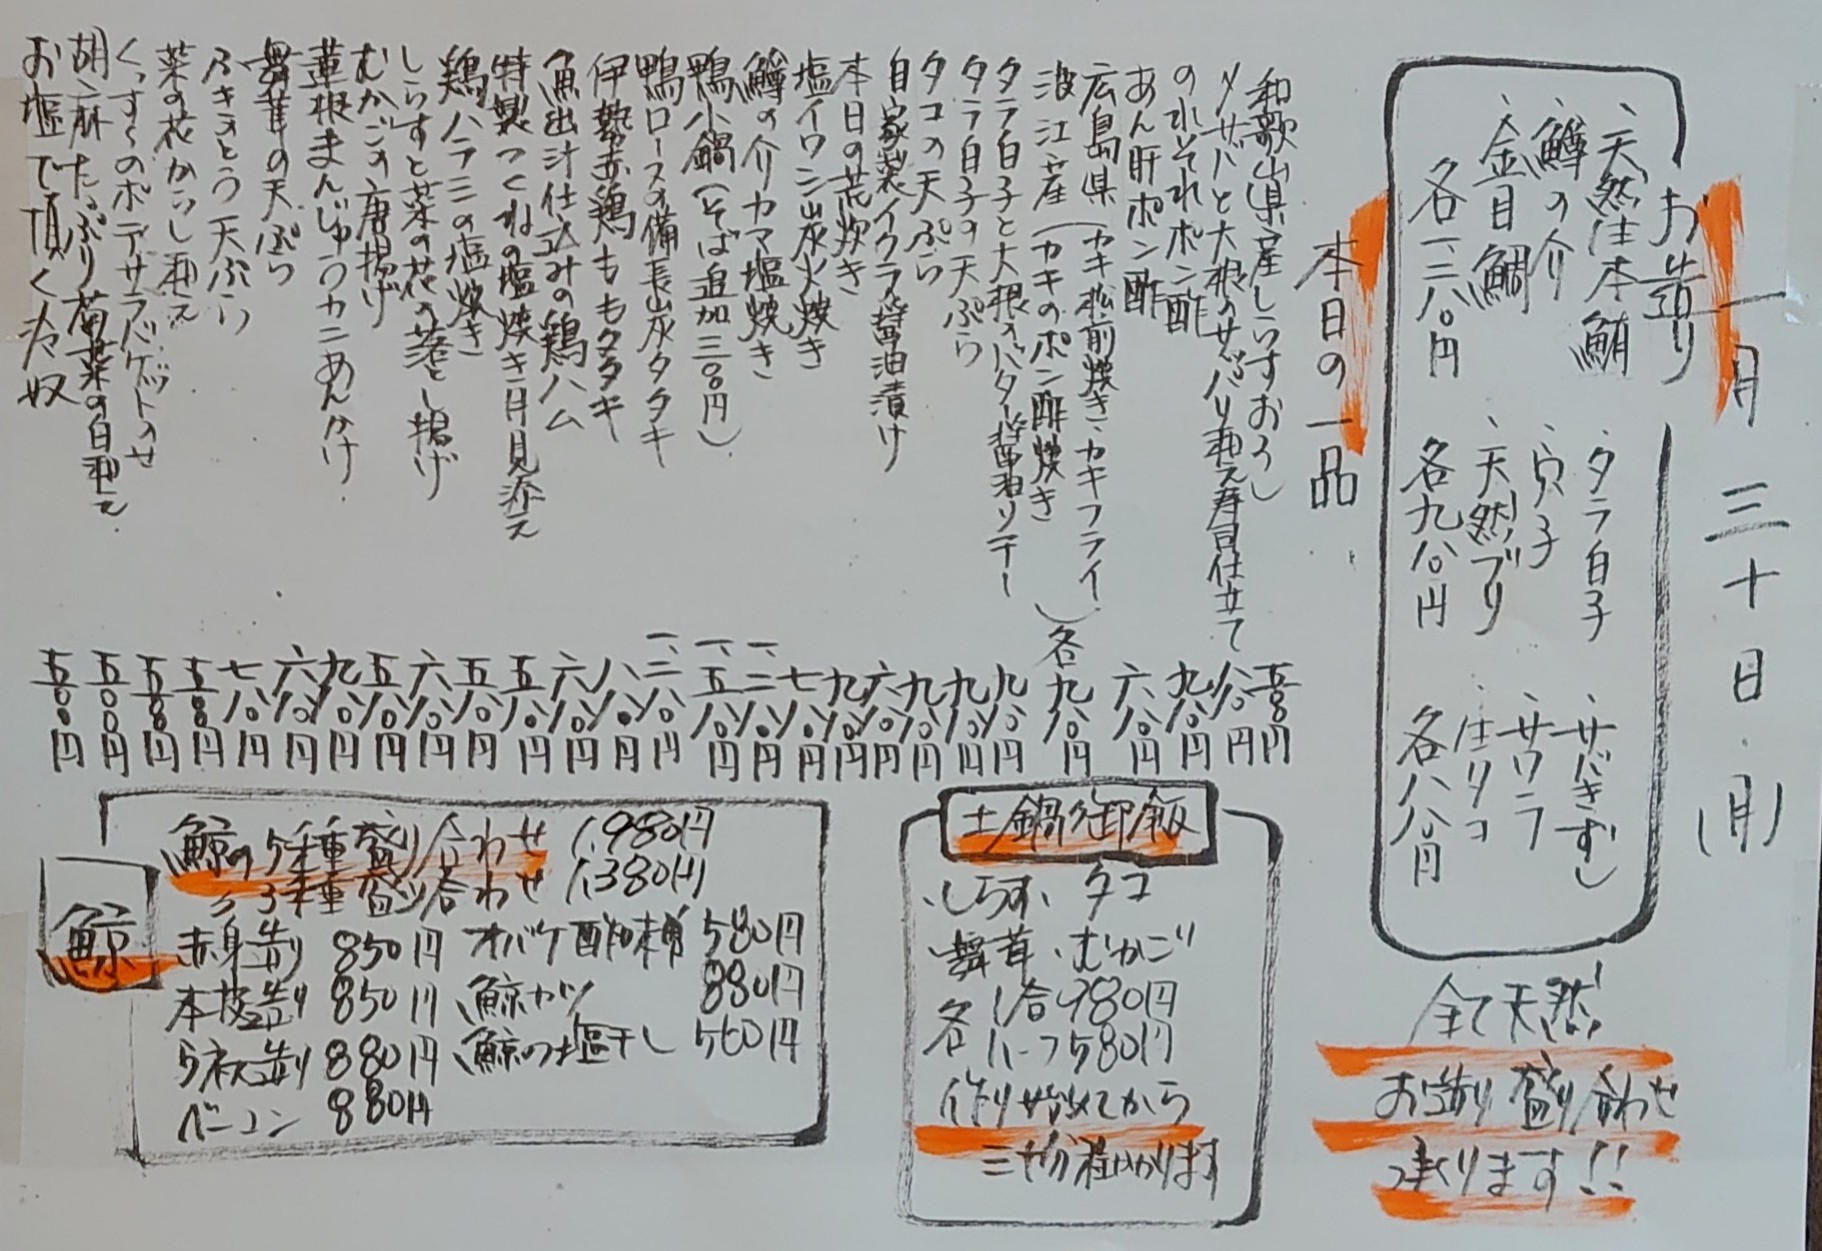 一月三十日(月)
お造り
、天然生本鮪
、鱒の介
、金目鯛
各一、三八〇円
、タラ白子
、穴子
、天然ブリ
各九八〇円
、サバきずし
、サワラ
、生タコ
各八八〇円
全て天然!
お造り盛り合わせ
承ります!!
本日の一品
和歌山県産しらすおろし 五八〇円
〆サバと大根のサッパリ和え寿司仕立て 八八〇円
のれそれポン酢 九八〇円
あん肝ポン酢 六八〇円
広島県(カキ松前焼き・カキフライ)
波江産(カキのポン酢焼き 各九八〇円
タラ白子と大根のバター醤油ソテー 九八〇円
タラ白子の天ぷら 九八〇円
タコの天ぷら 九八〇円
自家製イクラ醤油漬け 六八〇円
本日の荒炊き 九八〇円
塩イワシ炭火焼き 七八〇円
鱒の介カマ塩焼き 一、二八〇円
鴨小鍋(そば追加三〇〇円) 一、五八〇円
鴨ロースの備長炭タタキ 一、二八〇円
伊勢赤鶏ももタタキ 八八〇円
魚出汁仕込みの鶏ハム 六八〇円
特製つくねの塩焼き月見添え 五八〇円
鶏ハラミの塩焼き 五八〇円
しらすと菜の花の落とし揚げ 六八〇円
むかごの唐揚げ 五八〇円
蓮根まんじゅうカニあんかけ 九八〇円
舞茸の天ぷら 六八〇円
ふきのとう天ぷら 七八〇円
菜の花からし和え 五八〇円
くっすくのポテサラバゲットのせ 五八〇円
胡麻たっぷり菊菜の白和え 五〇〇円
お塩で頂く冷奴 五〇〇円
土鍋御飯
・しらす・タコ
・舞茸・むかご
各1合980円
各ハーフ580円
作り始めてから
三十分程かかります
鯨
鯨の5種盛り合わせ 1,980円
〃 3種盛り合わせ 1,380円
赤身造り 850円 オバケ酢味噌 580円
本皮造り 850円 鯨カツ 880円
う祢須造り 880円 鯨の塩干し 560円
ベーコン 880円